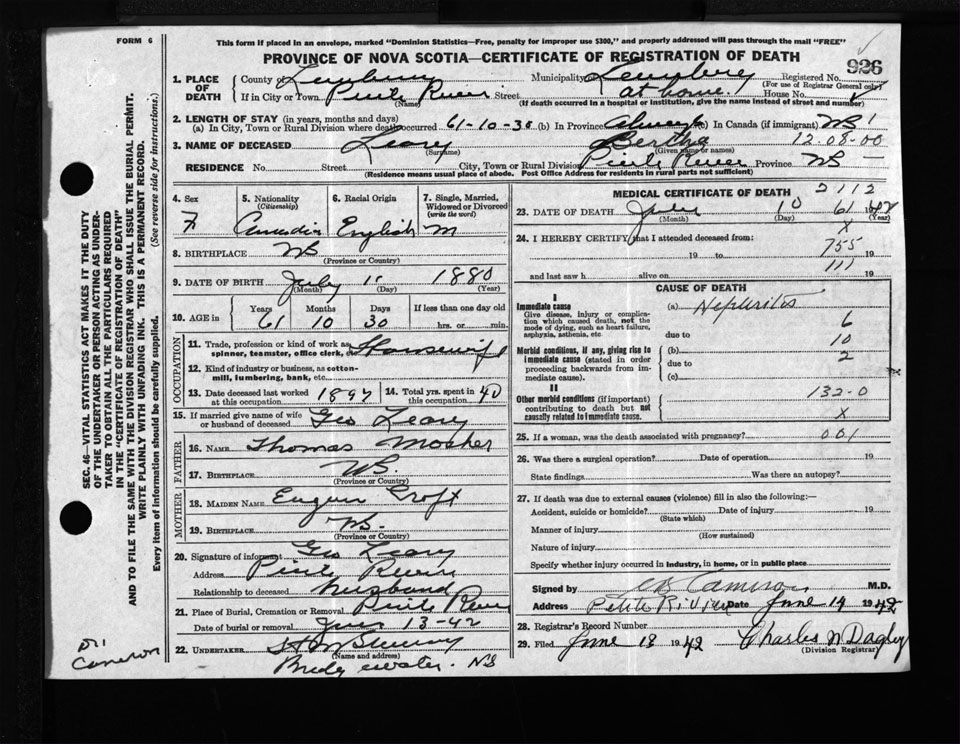 FORM 6
This form if placed in an envelope, marked "Dominion Statistics—Free, penalty for improper use $300," and properly addressed will pass through the mail "FREE"
PROVINCE OF NOVA SCOTIA—CERTIFICATE OF REGISTRATION OF DEATH
926
1. PLACE OF DEATH
County of Municipality Registered No.
(For use of Registrar General only)
If in City or Town Street at home. House No.
(Name) (If death occurred in a hospital or institution, give the name instead of street and number)
2. LENGTH OF STAY (in years, months and days)
(a) In City, Town or Rural Division where death occurred 61-10-30 (b) In Province (c) In Canada (if immigrant) NS 1
3. NAME OF DECEASED Leary Bertha 12-08-00
(Surname) (Given name or names)
RESIDENCE No. Street City, Town or Rural Division Province NS —
(Residence means usual place of abode. Post Office Address for residents in rural parts not sufficient)
4. Sex F
5. Nationality (Citizenship) Canadian
6. Racial Origin English
7. Single, Married, Widowed or Divorced (write the word) M
8. BIRTHPLACE NS
(Province or Country)
9. DATE OF BIRTH July 11 1880
(Month) (Day) (Year)
10. AGE in Years Months Days If less than one day old
61 10 30 hrs. or min.
OCCUPATION
11. Trade, profession or kind of work as spinner, teamster, office clerk, etc. Housewife
12. Kind of industry or business, as cotton-mill, lumbering, bank, etc.
13. Date deceased last worked at this occupation 1897
14. Total yrs. spent in this occupation. 40
15. If married give name of wife or husband of deceased Geo Leary
FATHER
16. NAME Thomas Mosher
17. BIRTHPLACE NS.
(Province or Country)
MOTHER
18. MAIDEN NAME Croft
19. BIRTHPLACE NS.
(Province or Country)
20. Signature of informant Geo Leary
Address
Relationship to deceased husband
21. Place of Burial, Cremation or Removal
Date of burial or removal 13-42
22. UNDERTAKER
(Name and address)
NS
MEDICAL CERTIFICATE OF DEATH 2112
23. DATE OF DEATH 10 61 1942
(Month) (Day) (Year)
X
24. I HEREBY CERTIFY that I attended deceased from:
19 to 755 19
111
and last saw h alive on 19
CAUSE OF DEATH
I
Immediate cause
Give disease, injury or complication which caused death, not the mode of dying, such as heart failure, asphyxia, asthenia, etc
(a) Nephritis
6
due to 10
Morbid conditions, if any, giving rise to immediate cause (stated in order proceeding backwards from immediate cause).
(b) 2
due to
(c)
II
132-0
Other morbid conditions (if important) contributing to death but not causally related to immediate cause.
X
25. If a woman, was the death associated with pregnancy? 001
26. Was there a surgical operation? Date of operation 19
State findings Was there an autopsy?
27. If death was due to external causes (violence) fill in also the following:—
Accident, suicide or homicide? Date of injury 19
(State which)
Manner of injury
(How sustained)
Nature of injury
Specify whether injury occurred in industry, in home, or in public place
Signed by Cameron M.D.
Address Petite Riviere Date June 19 1942
28. Registrar's Record Number
29. Filed June 18 1942 Charles N Dagley
(Division Registrar)
Dr
Cameron
SEC. 46—VITAL STATISTICS ACT MAKES IT THE DUTY
OF THE UNDERTAKER OR PERSON ACTING AS UNDER-
TAKER TO OBTAIN ALL THE PARTICULARS REQUIRED
IN THE "CERTIFICATE OF REGISTRATION OF DEATH"
AND TO FILE THE SAME WITH THE DIVISION REGISTRAR WHO SHALL ISSUE THE BURIAL PERMIT.
WRITE PLAINLY WITH UNFADING INK. THIS IS A PERMANENT RECORD.
Every item of information should be carefully supplied. (See reverse side for instructions.)